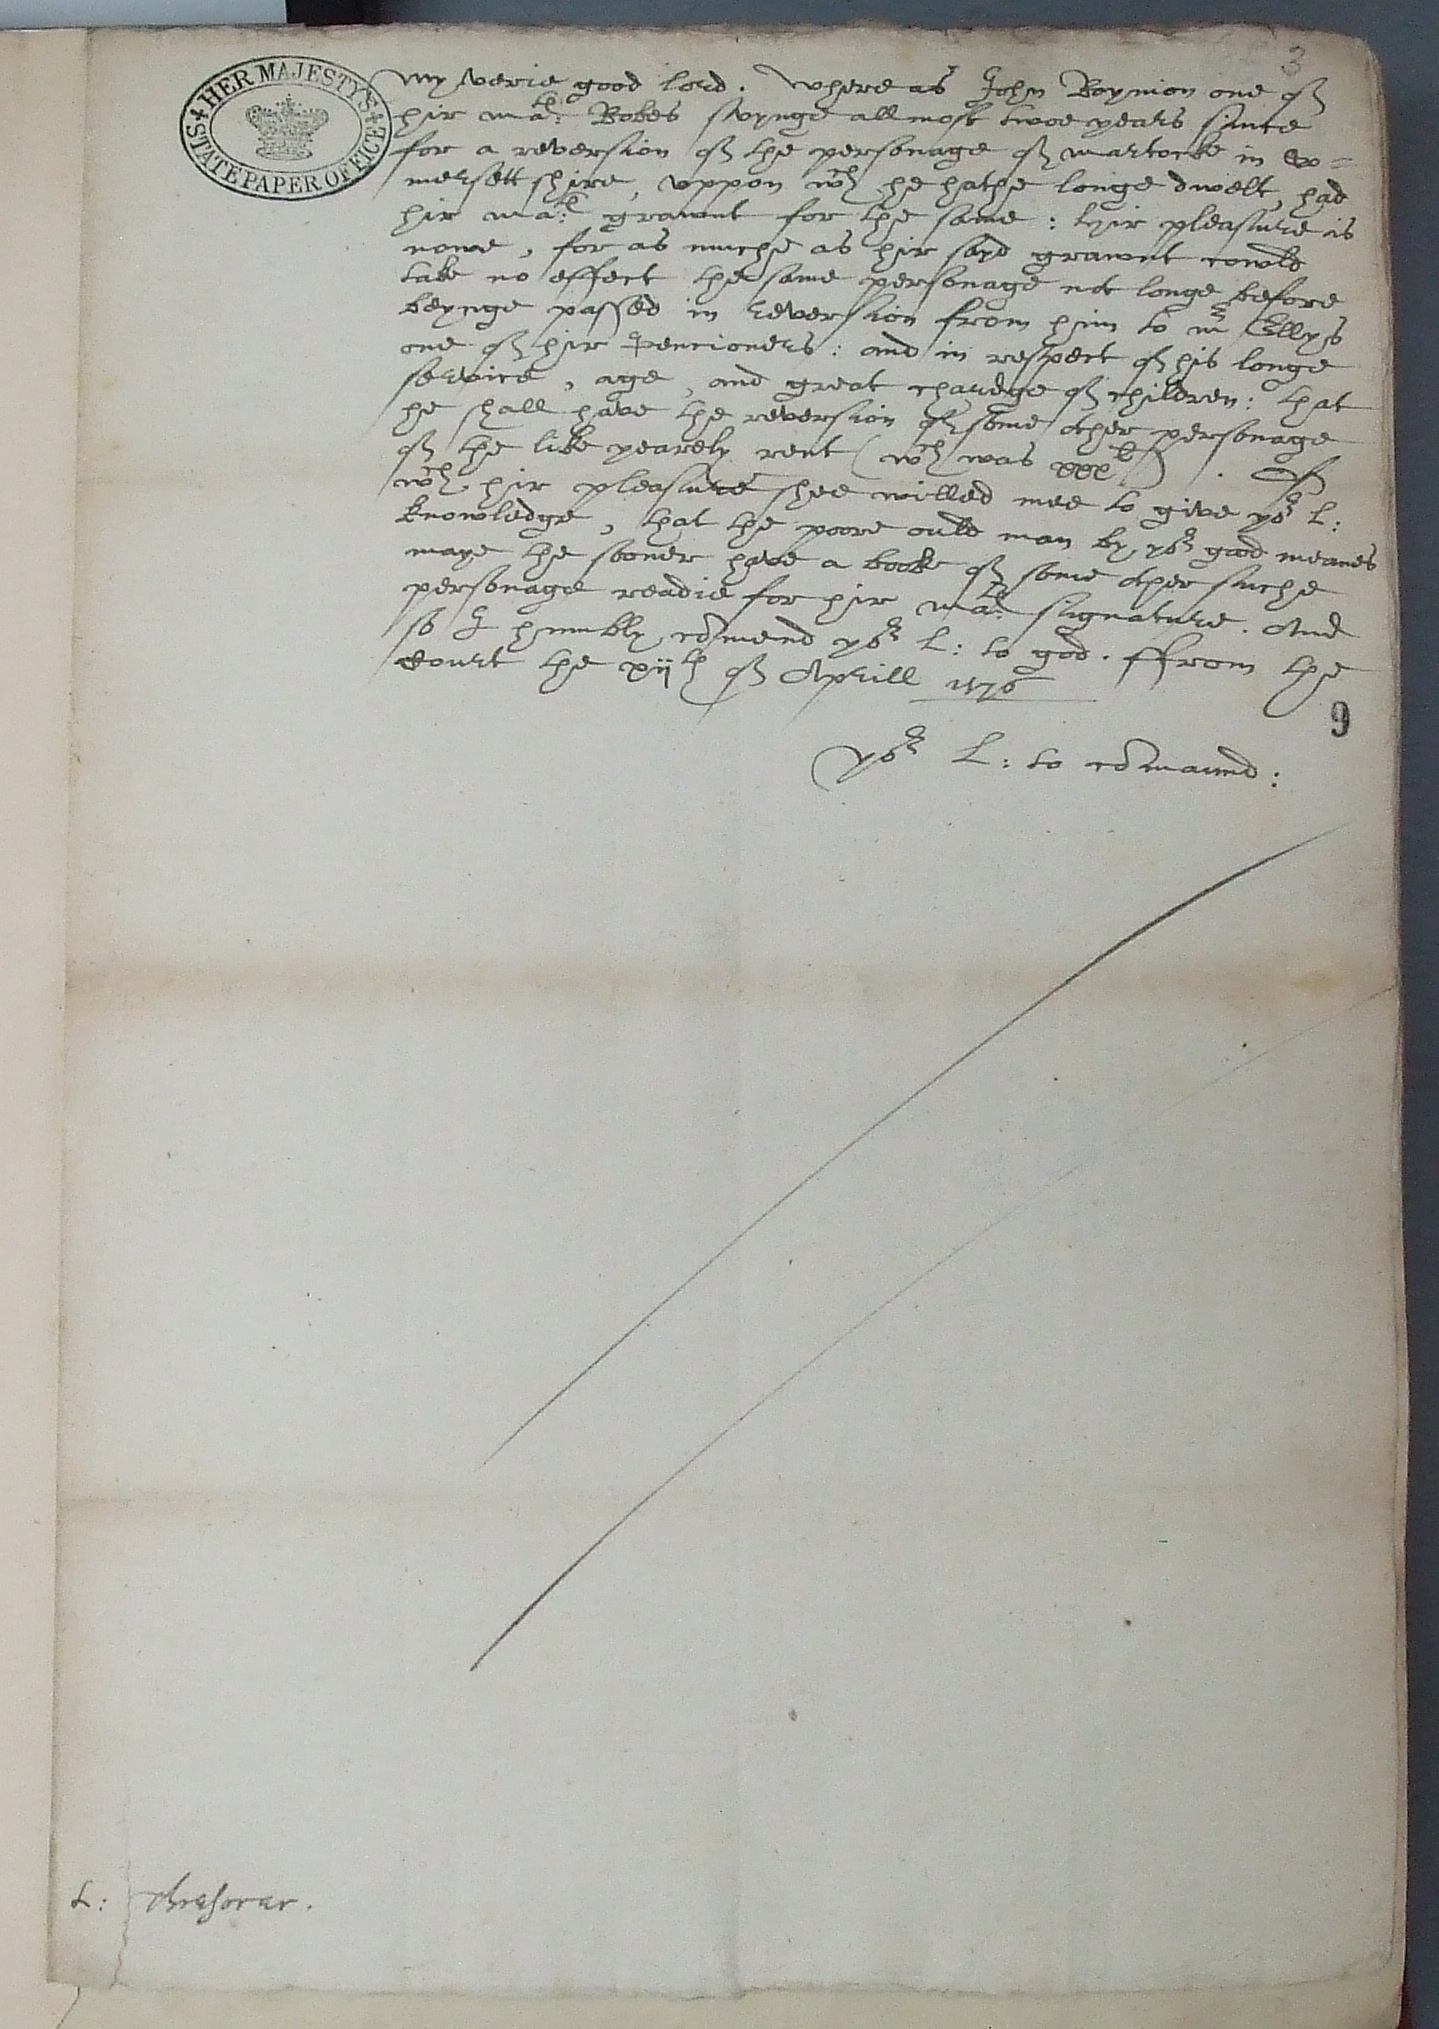 3
HER MAJESTY'S STATE PAPER OFFICE
My verie good lord. Where as John Boynion one of
hir ma:tis Robes suynge allmost twoe years since
for a reversion of the personage of martocke in So=
mersett shire, uppon wch he hathe longe dwelt, had
hir ma:tis graunt for the same: hir pleasure is
nowe, for as muche as hir sayd graunt cowld
take no effect the same personage not longe before
beynge passed in reversion from him to mr Ellys
one of hir Pencioners: and in respect of his longe
service, age, and great chardge of children: that
he shall have the reversion of some other personage
of the like yearely rent (wch was xxxli) . Of
wch hir pleasure shee willed mee to give yor L:
knowledge, that the poore ould man by yor good meanes
maye the sooner have a booke of some other suche
personage readie for hir ma:tis signature. And
so I humbly comend yor L: to god. ffrom the
Court the xijth of Aprill 1576
9
yor L: to comaund:
L: thresorer.